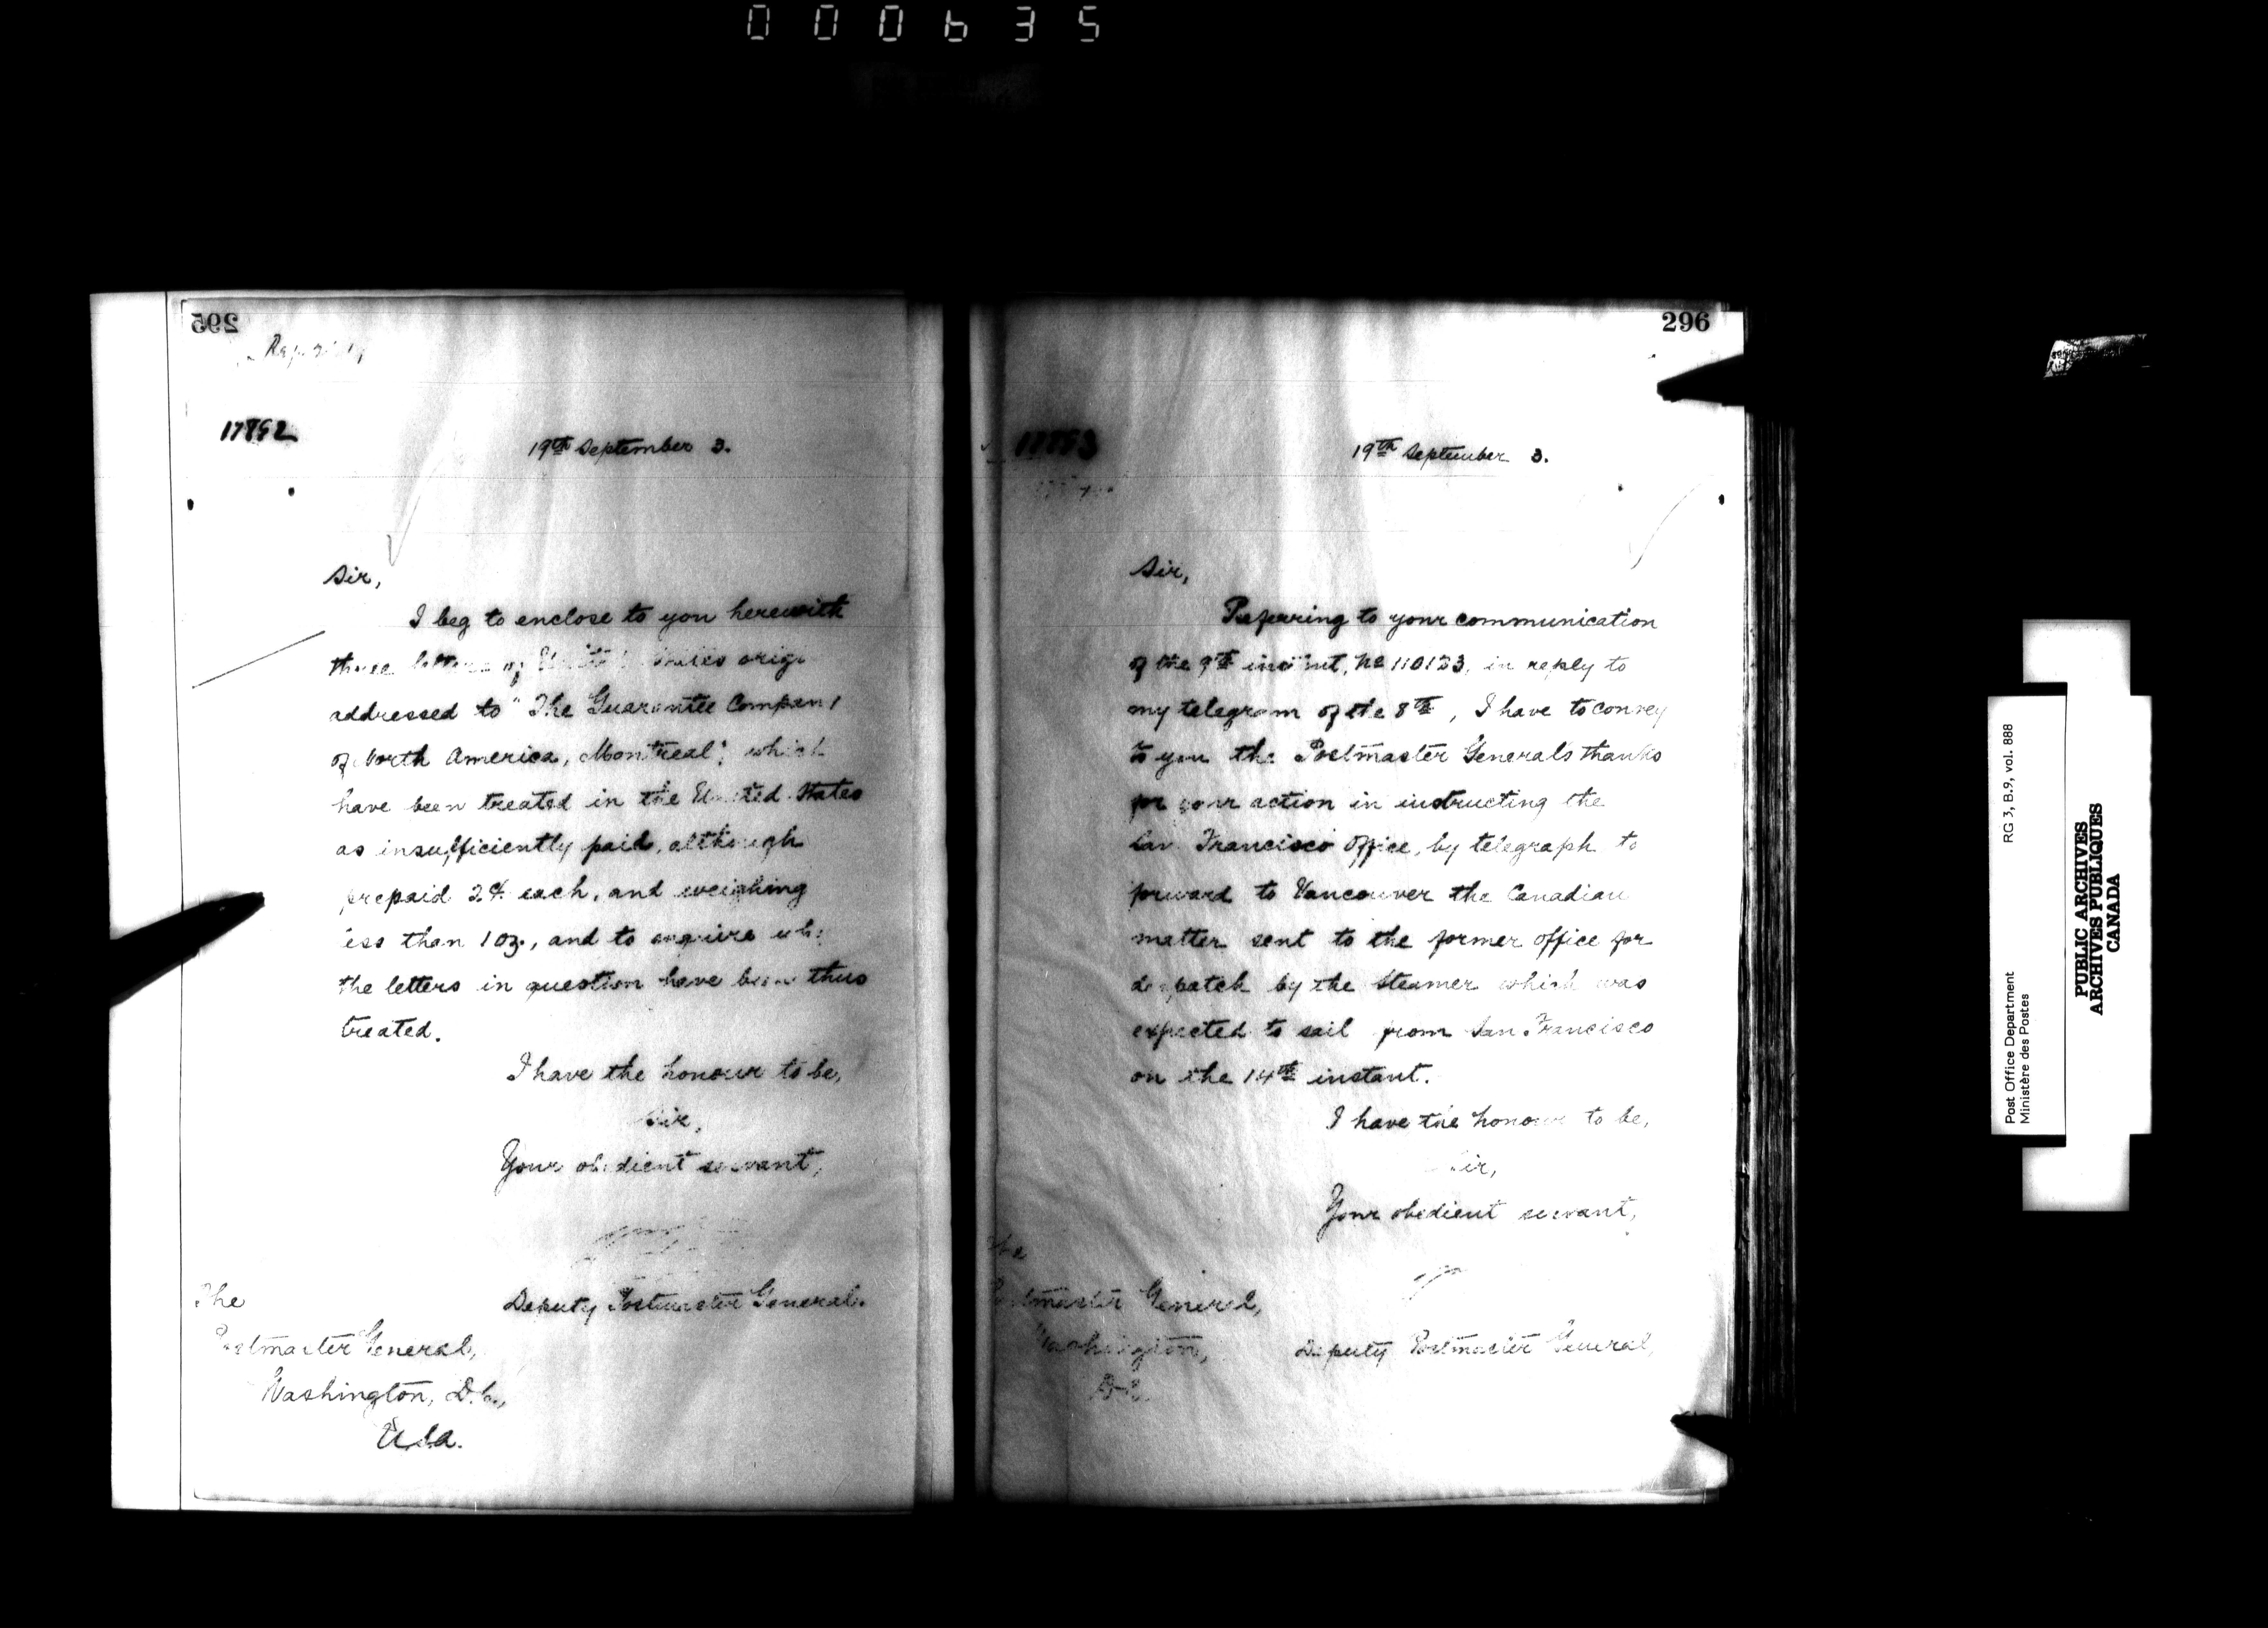 000635
295
17892
19th September 3.
Sir,
I beg to enclose to you herewith
three letters of United States origi
addressed to "The Guarantee Company
of North America, Montreal", which
have been treated in the United States
as insufficiently paid, although
prepaid 2¢ each, and weighing
less than 1 oz., and to enquire why
the letters in question have been thus
treated.
I have the honour to be,
Sir,
Your obedient servant,
Deputy Postmaster General.
The
Postmaster General,
Washington, D.C.,
U.S.A.
296
19th September 3.
Sir,
Referring to your communication
of the 9th instant, No 110123, in reply to
my telegram of the 8th, I have to convey
to you the Postmaster Generals thanks
for your action in instructing the
San Francisco Office, by telegraph to
forward to Vancouver the Canadian
matter sent to the former office for
despatch by the Steamer which was
expected to sail from San Francisco
on the 14th instant.
I have the honour to be,
Sir,
Your obedient servant,
Deputy Postmaster General,
The
Postmaster General,
Washington,
D.C.
Post Office Department
Ministère des Postes
RG 3, B.9, vol. 888
PUBLIC ARCHIVES
ARCHIVES PUBLIQUES
CANADA